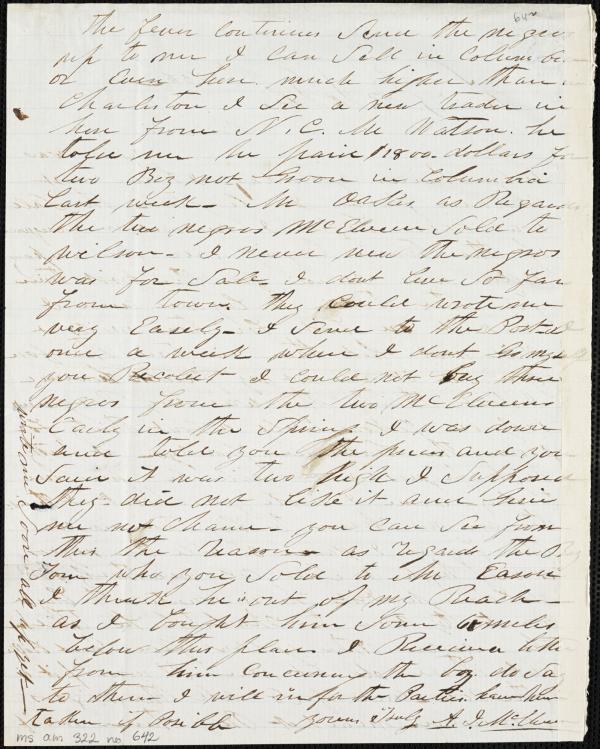 642
the fever continues Send the negros
up to me I can Sell in Columbia
or Even here much higher than in
Charleston I See a new trader in
here from N.C. Mr Watson. he
told me he paid $1800. dollars for
two Boy not Good in Columbia
Last week - Mr Oakes as Regards
the two negros McElveen Sold to
Wilson - I never new the negros
was for Sale I dont live So far
from town. they could wrote me
very Easely - I Send to the Post-
once a week when I dont Go my
you Recolect I could not buy these
negros from the two McElveens
Early in the Spring I was down
and told you the price and you
Said it was two high I Supposed
they did not like it and
me no Chance - you can See from
this the reason - as regards the Boy
Tom who you Sold to Mr Eason
I think he out of my Reach -
as I bought him Some miles
below this place I Received letter
from him concerning the boy do Say
to them I will inform the Parties have him
taken if Possible yours Truly A. J. McElveen
ms am 322 no 642